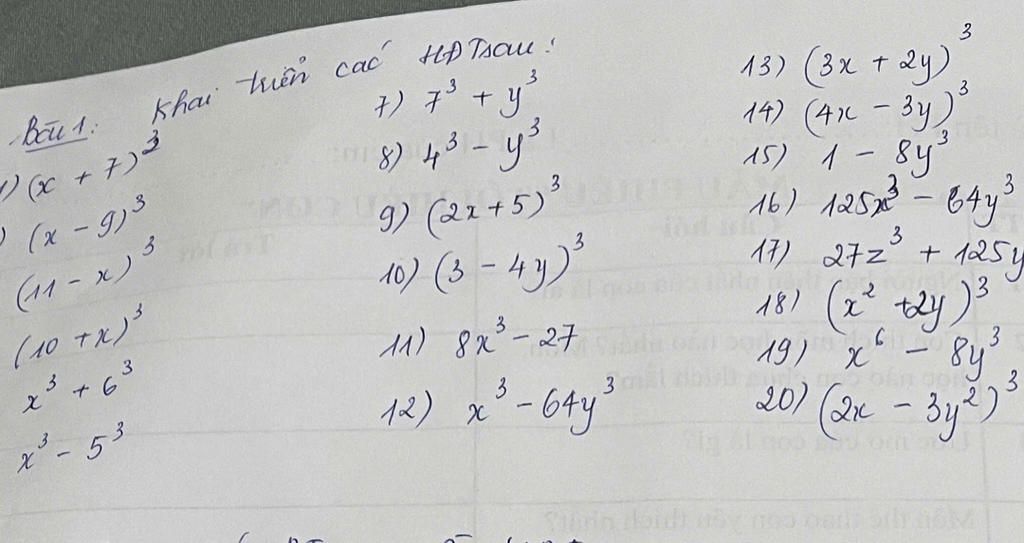 Bài 1: Khai triển các HĐT sau:
1) (x + 7)³
) (x - 9)³
(11 - x)³
(10 + x)³
x³ + 6³
x³ - 5³
7) 7³ + y³
8) 4³ - y³
9) (2x + 5)³
10) (3 - 4y)³
11) 8x³ - 27
12) x³ - 64y³
13) (3x + 2y)³
14) (4x - 3y)³
15) 1 - 8y³
16) 125x³ - 64y³
17) 27z³ + 125y
18) (x² + 2y)³
19) x⁶ - 8y³
20) (2x - 3y²)³